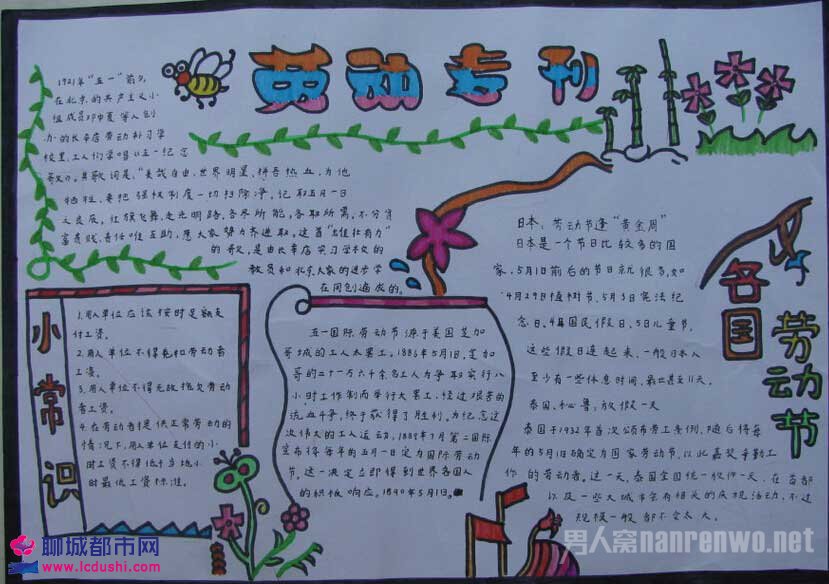 劳动专刊
1921年"五一"前夕
在北京的共产主义小
组成员邓中夏等人创
办的长辛店劳动补习学
校里,工人们学唱《五一纪念
歌》。其歌词是:"美哉自由,世界明星,拼吾热血,为他
牺牲,要把强权制度一切扫除净,记取五月一日
之良辰。红旗飞舞,走光明路,各尽所能,各取所需,不分贫
富贵贱,责任唯互助,愿大家努力齐进取。这首"雄壮有力"
的歌,是由长辛店实习学校的
教员和北京大家的进步学
在同创造成的。
小常识
1.用人单位应该按时足额支
付工资。
2.用人单位不得克扣劳动者
工资。
3.用人单位不得无故拖欠劳动
者工资。
4.在劳动者提供正常劳动的
情况下,用人单位支付的小
时工资不得低于当地小
时最低工资标准。
五一国际劳动节源于美国芝加
哥城的工人大罢工。1886年5月1日,芝加
哥的二十一万六千余名工人为争取实行八
小时工作制而举行大罢工,经过艰苦的
流血斗争,终于获得了胜利。为纪念这
次伟大的工人运动,1889年7月第二国际
宣布将每年的五月一日定为国际劳动
节。这一决定立即得到世界各国人
的积极响应。1890年5月1日。
各国劳动节
日本:劳动节逢"黄金周"
日本是一个节日比较多的国
家,5月1日前后的节日就很多,如
4月29日植树节、5月3日宪法纪
念日、4日国民假日、5日儿童节,
这些假日连起来,一般日本人
至少有一些休息时间,最长甚至11天。
泰国、秘鲁:放假一天
泰国于1932年首次颁布劳工条例,随后将每
年的5月1日确定为国家劳动节,以此嘉奖辛勤工
作的劳动者。这一天,泰国全国统一放假一天,在首都
以及一些大城市会有相关的庆祝活动,不过
规模一般都不会太大。
聊城都市网
www.lcdushi.com
男人窝nanrenwo.net